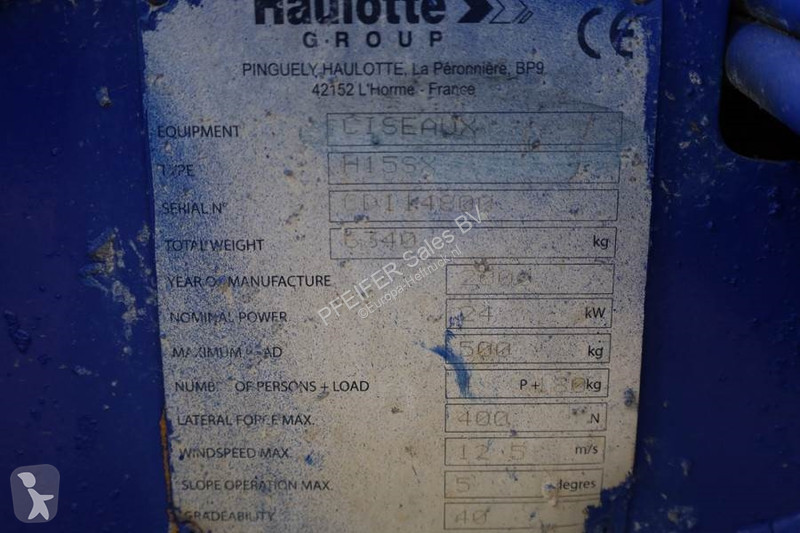 Haulotte
GROUP
CE
PINGUELY HAULOTTE, La Péronnière, BP9
42152 L'Horme - France
EQUIPMENT CISEAUX
TYPE H15SX
SERIAL N° CD114800
TOTAL WEIGHT 6340 kg
YEAR OF MANUFACTURE
NOMINAL POWER 24 kW
MAXIMUM 500 kg
OF PERSONS + LOAD P+ kg
LATERAL FORCE MAX. 400 N
WINDSPEED MAX. 12.5 m/s
SLOPE OPERATION MAX. 5 degres
GRADEABILITY 40
PFEIFER Sales BV
©Europe-Heftruck.nl